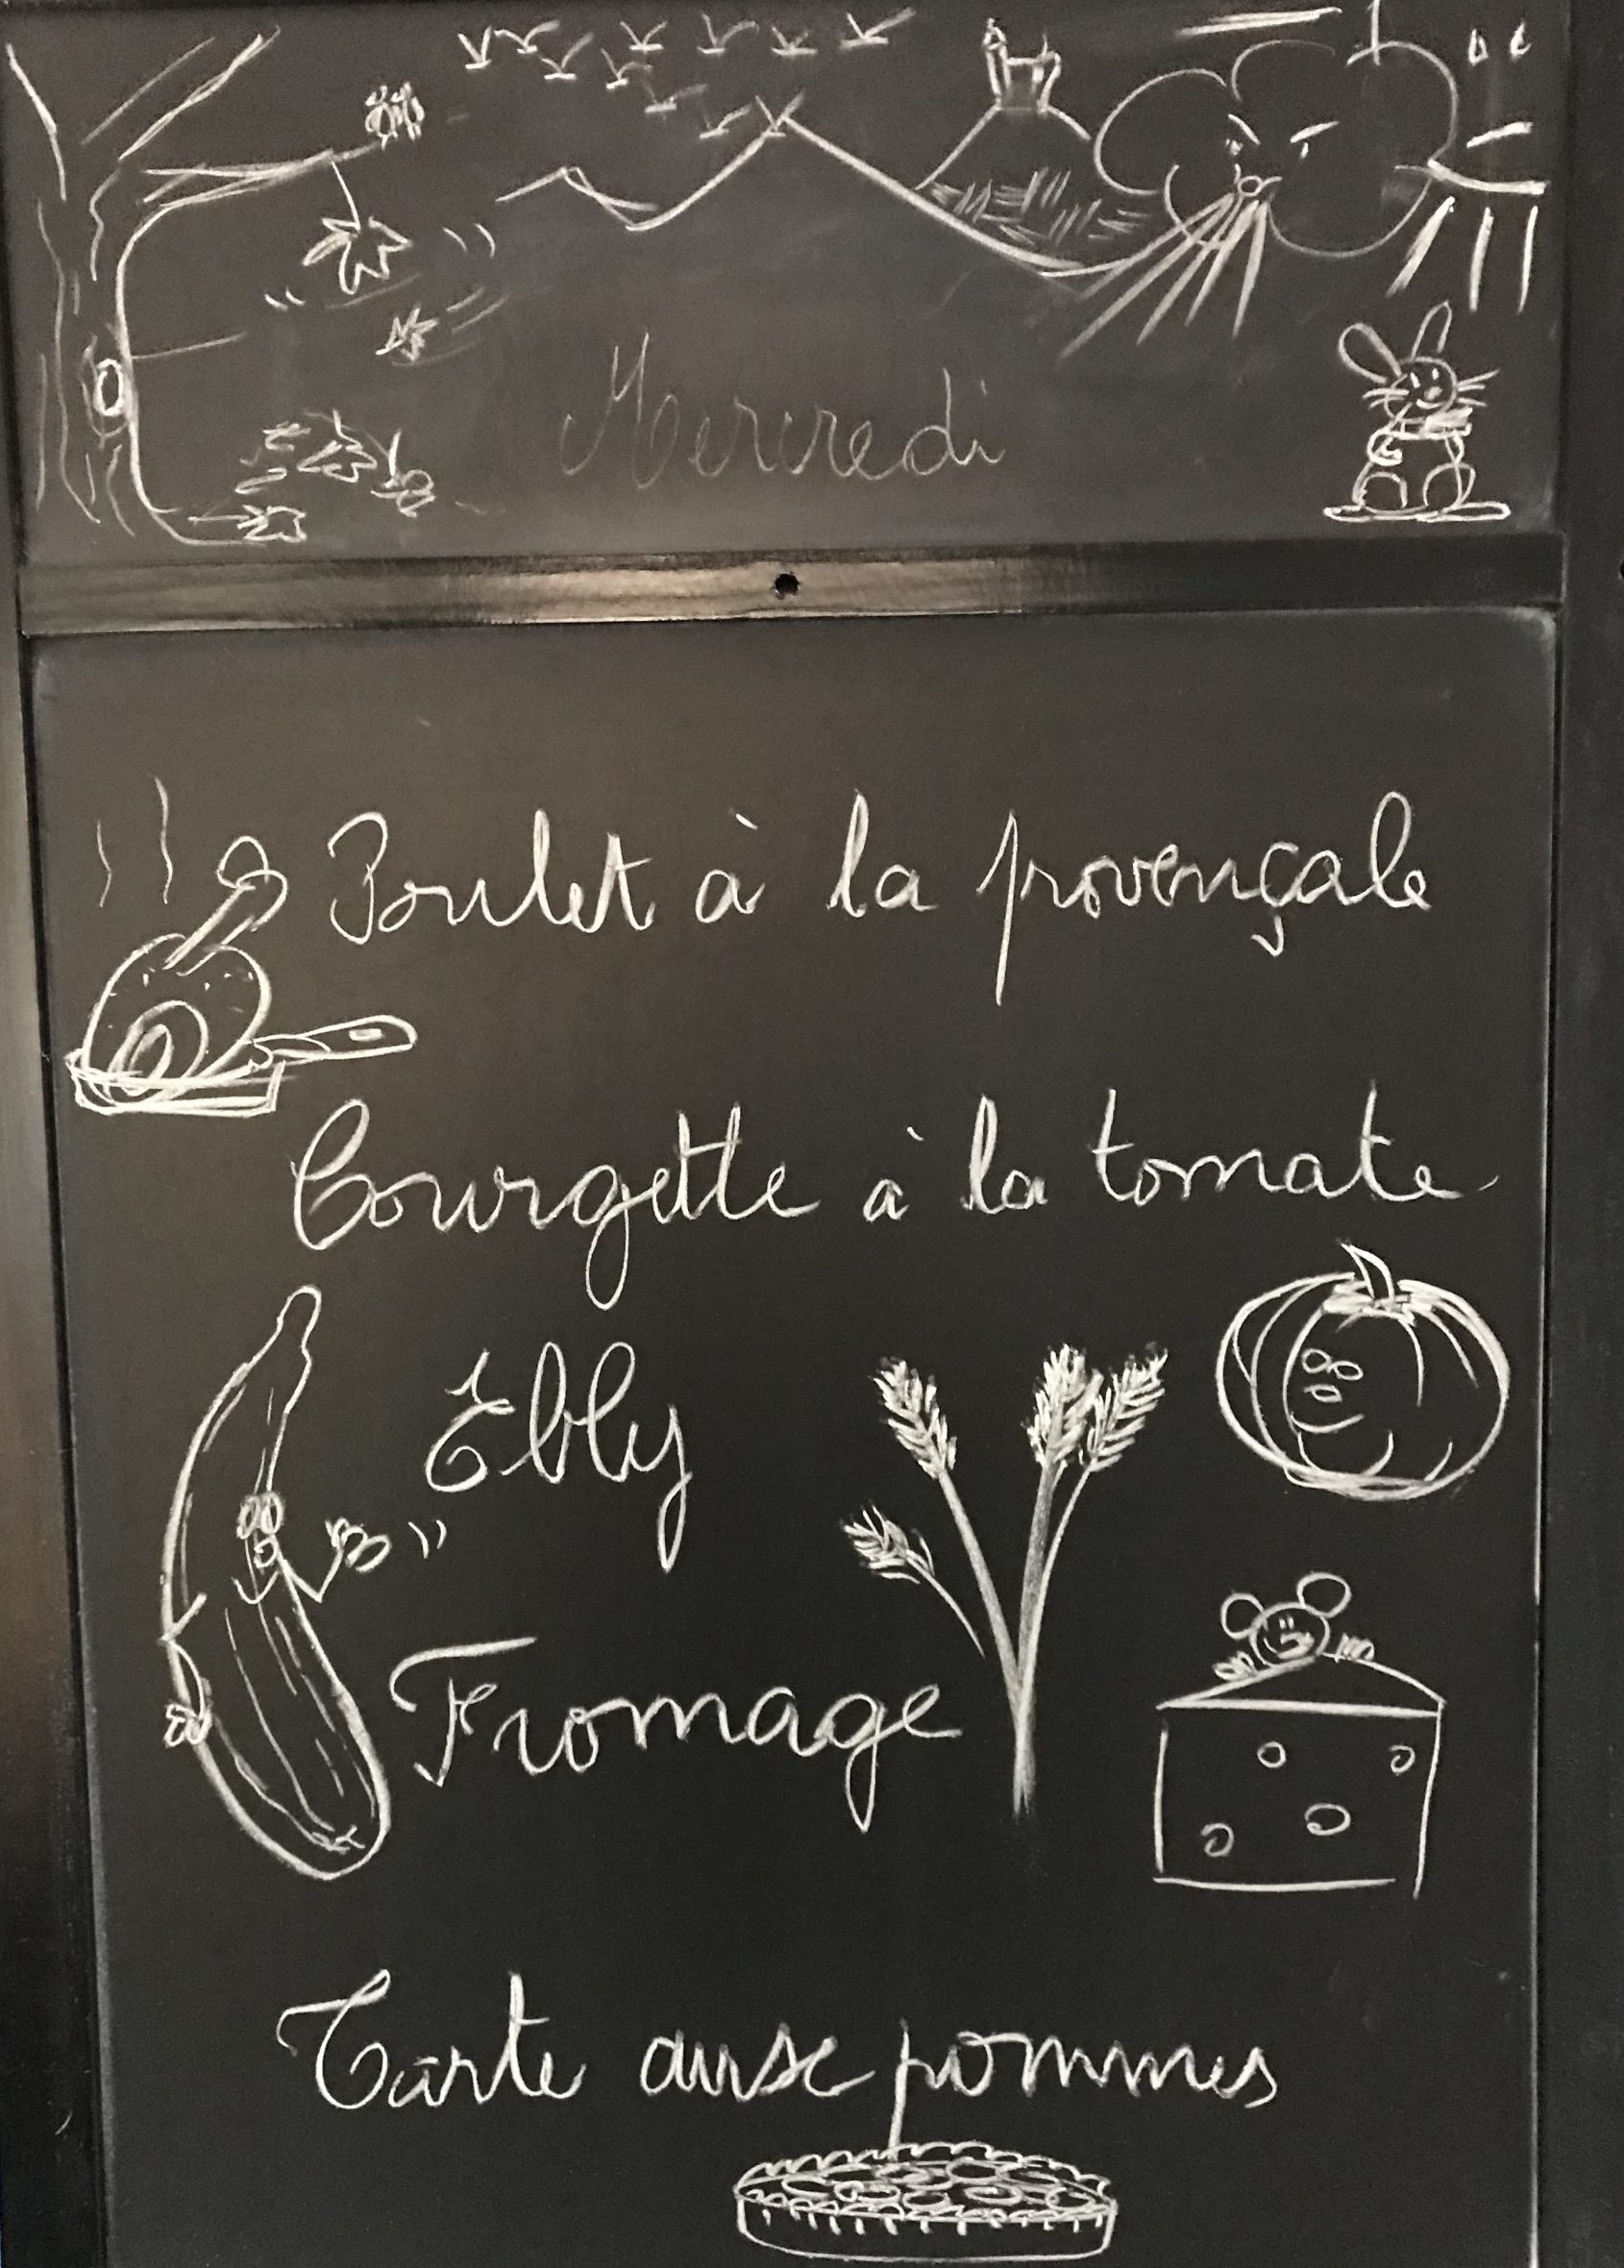 Mercredi
Poulet à la provençale
Courgette à la tomate
Ebly
Fromage
Tarte aux pommes